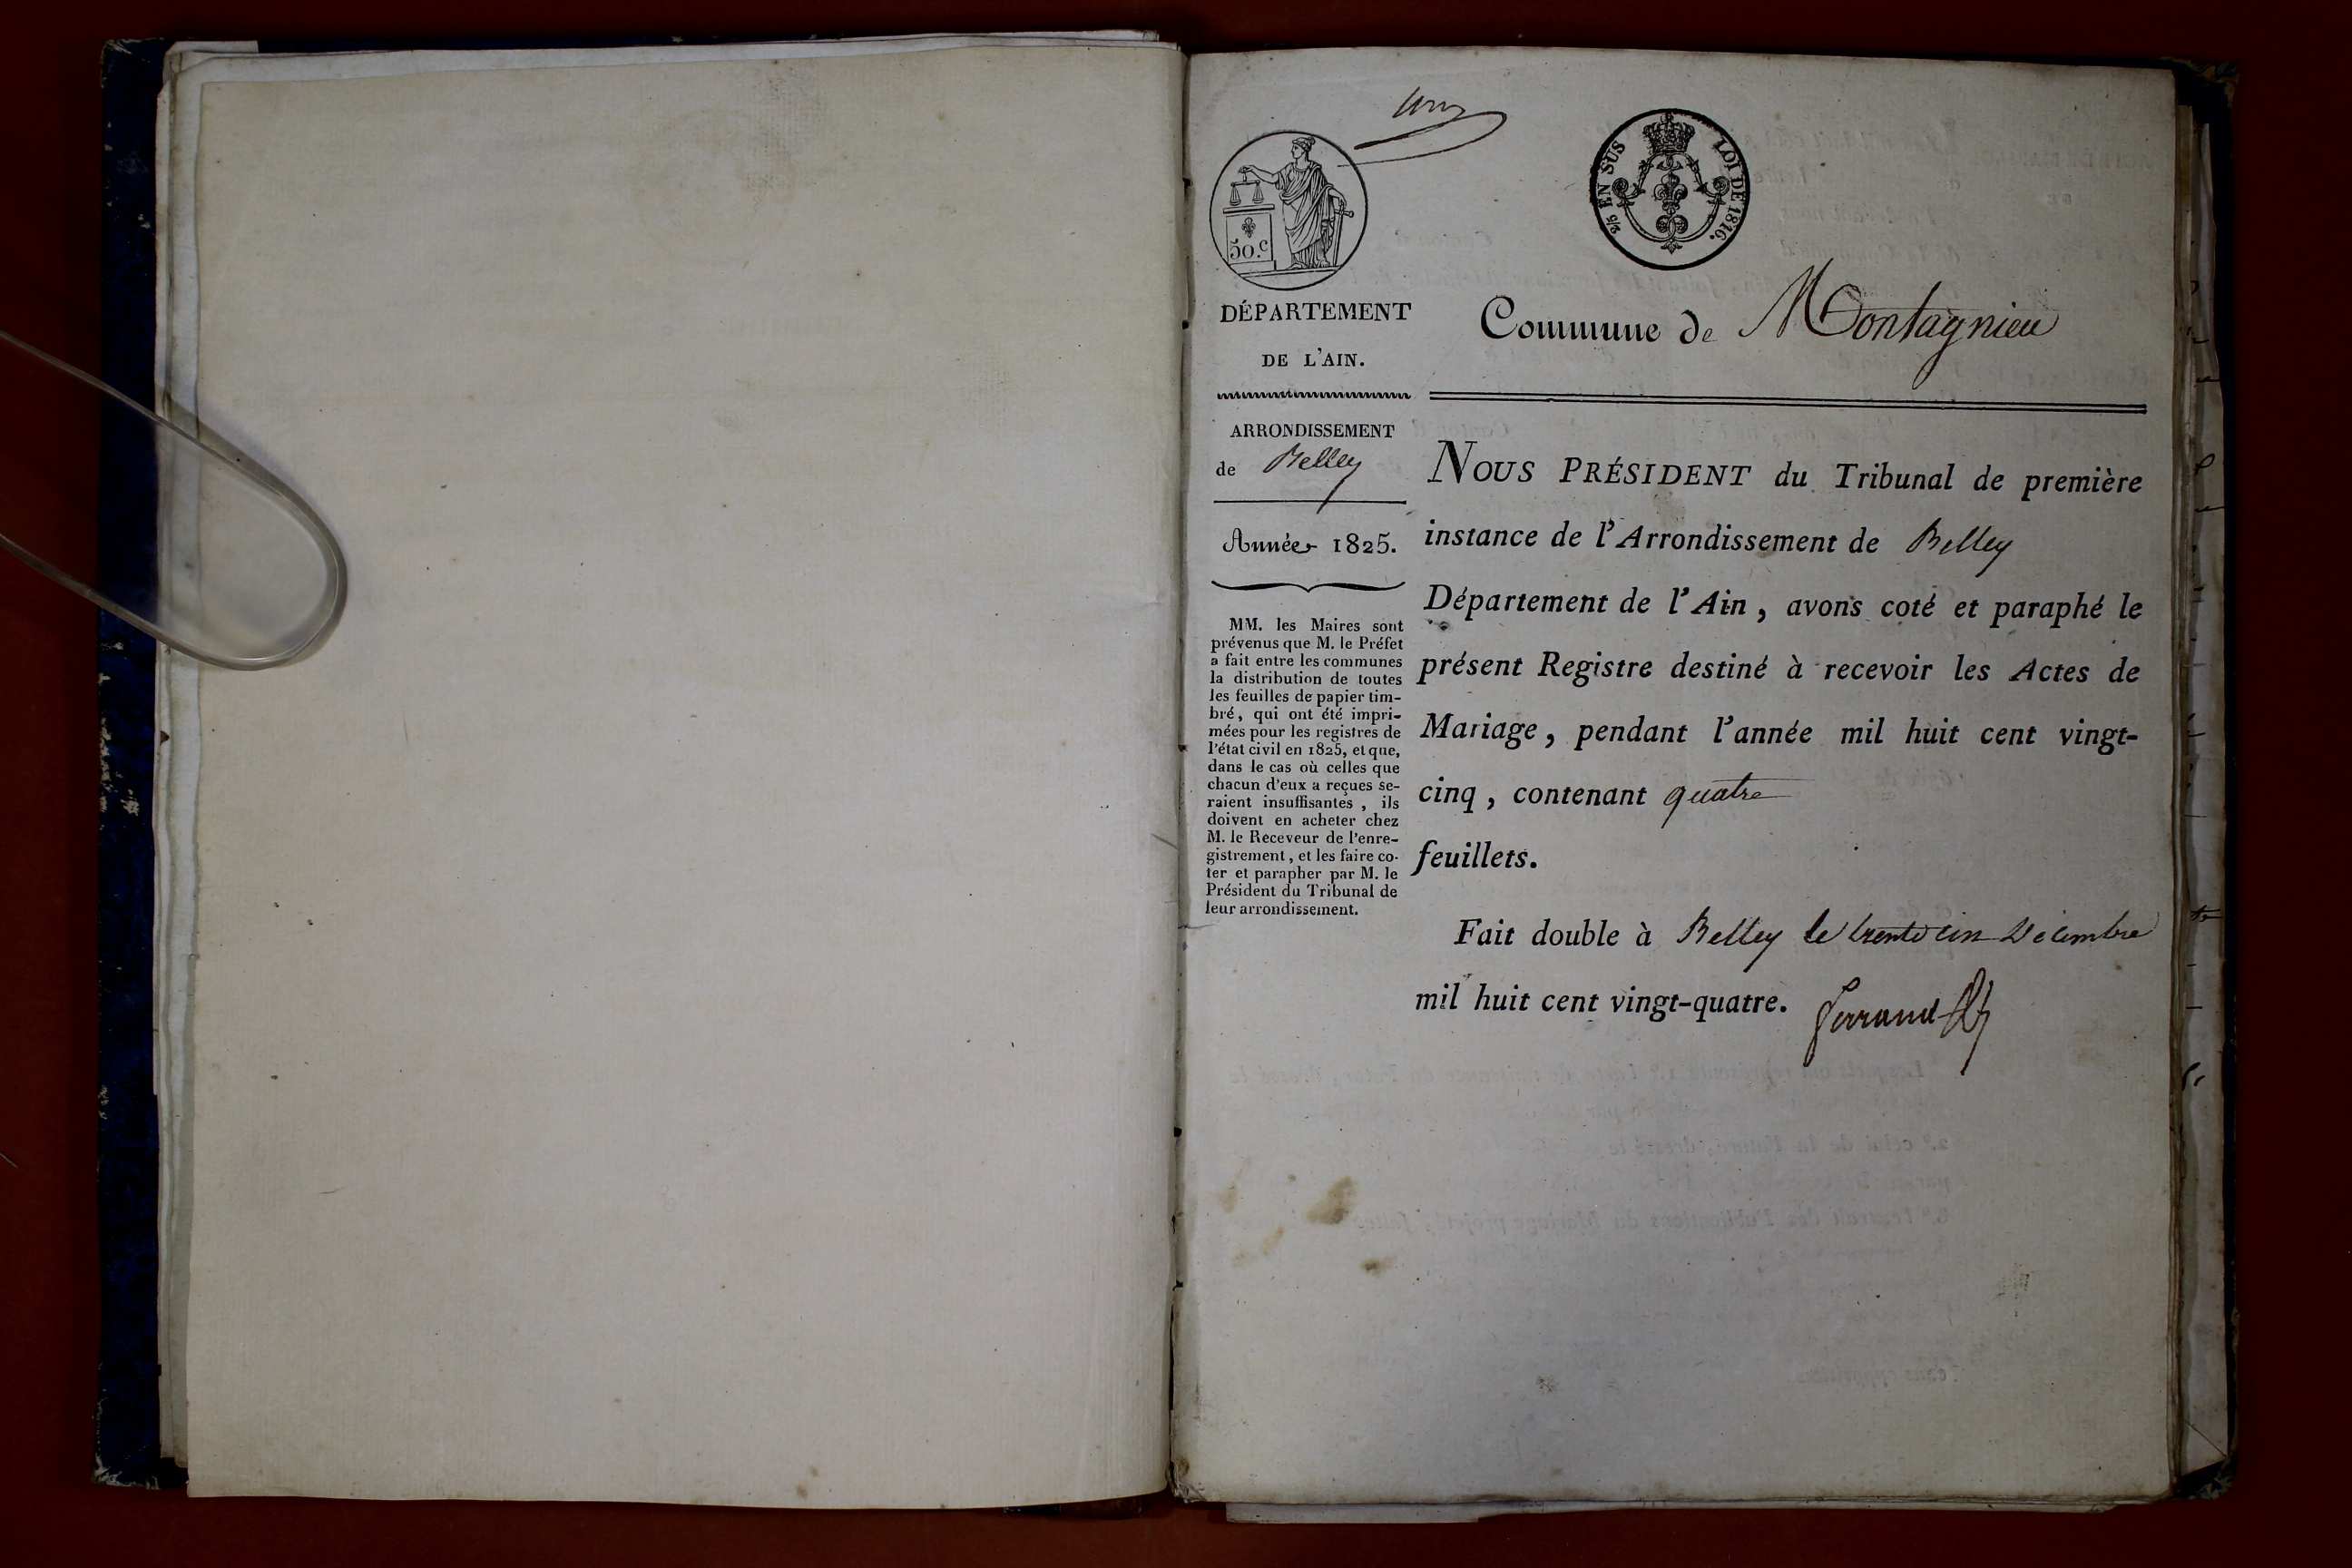 un
50.c
2/5 EN SUS LOI DE 1816.
DÉPARTEMENT
DE L'AIN.
Commune de Montagnieu
ARRONDISSEMENT
de Belley
Année 1825.
MM. les Maires sont
prévenus que M. le Préfet
a fait entre les communes
la distribution de toutes
les feuilles de papier tim-
bré, qui ont été impri-
mées pour les registres de
l'état civil en 1825, et que,
dans le cas où celles que
chacun d'eux a reçues se-
raient insuffisantes, ils
doivent en acheter chez
M. le Receveur de l'enre-
gistrement, et les faire co-
ter et parapher par M. le
Président du Tribunal de
leur arrondissement.
NOUS PRÉSIDENT du Tribunal de première
instance de l'Arrondissement de Belley
Département de l'Ain, avons coté et paraphé le
présent Registre destiné à recevoir les Actes de
Mariage, pendant l'année mil huit cent vingt-
cinq, contenant quatre
feuillets.
Fait double à Belley le trente un Décembre
mil huit cent vingt-quatre.